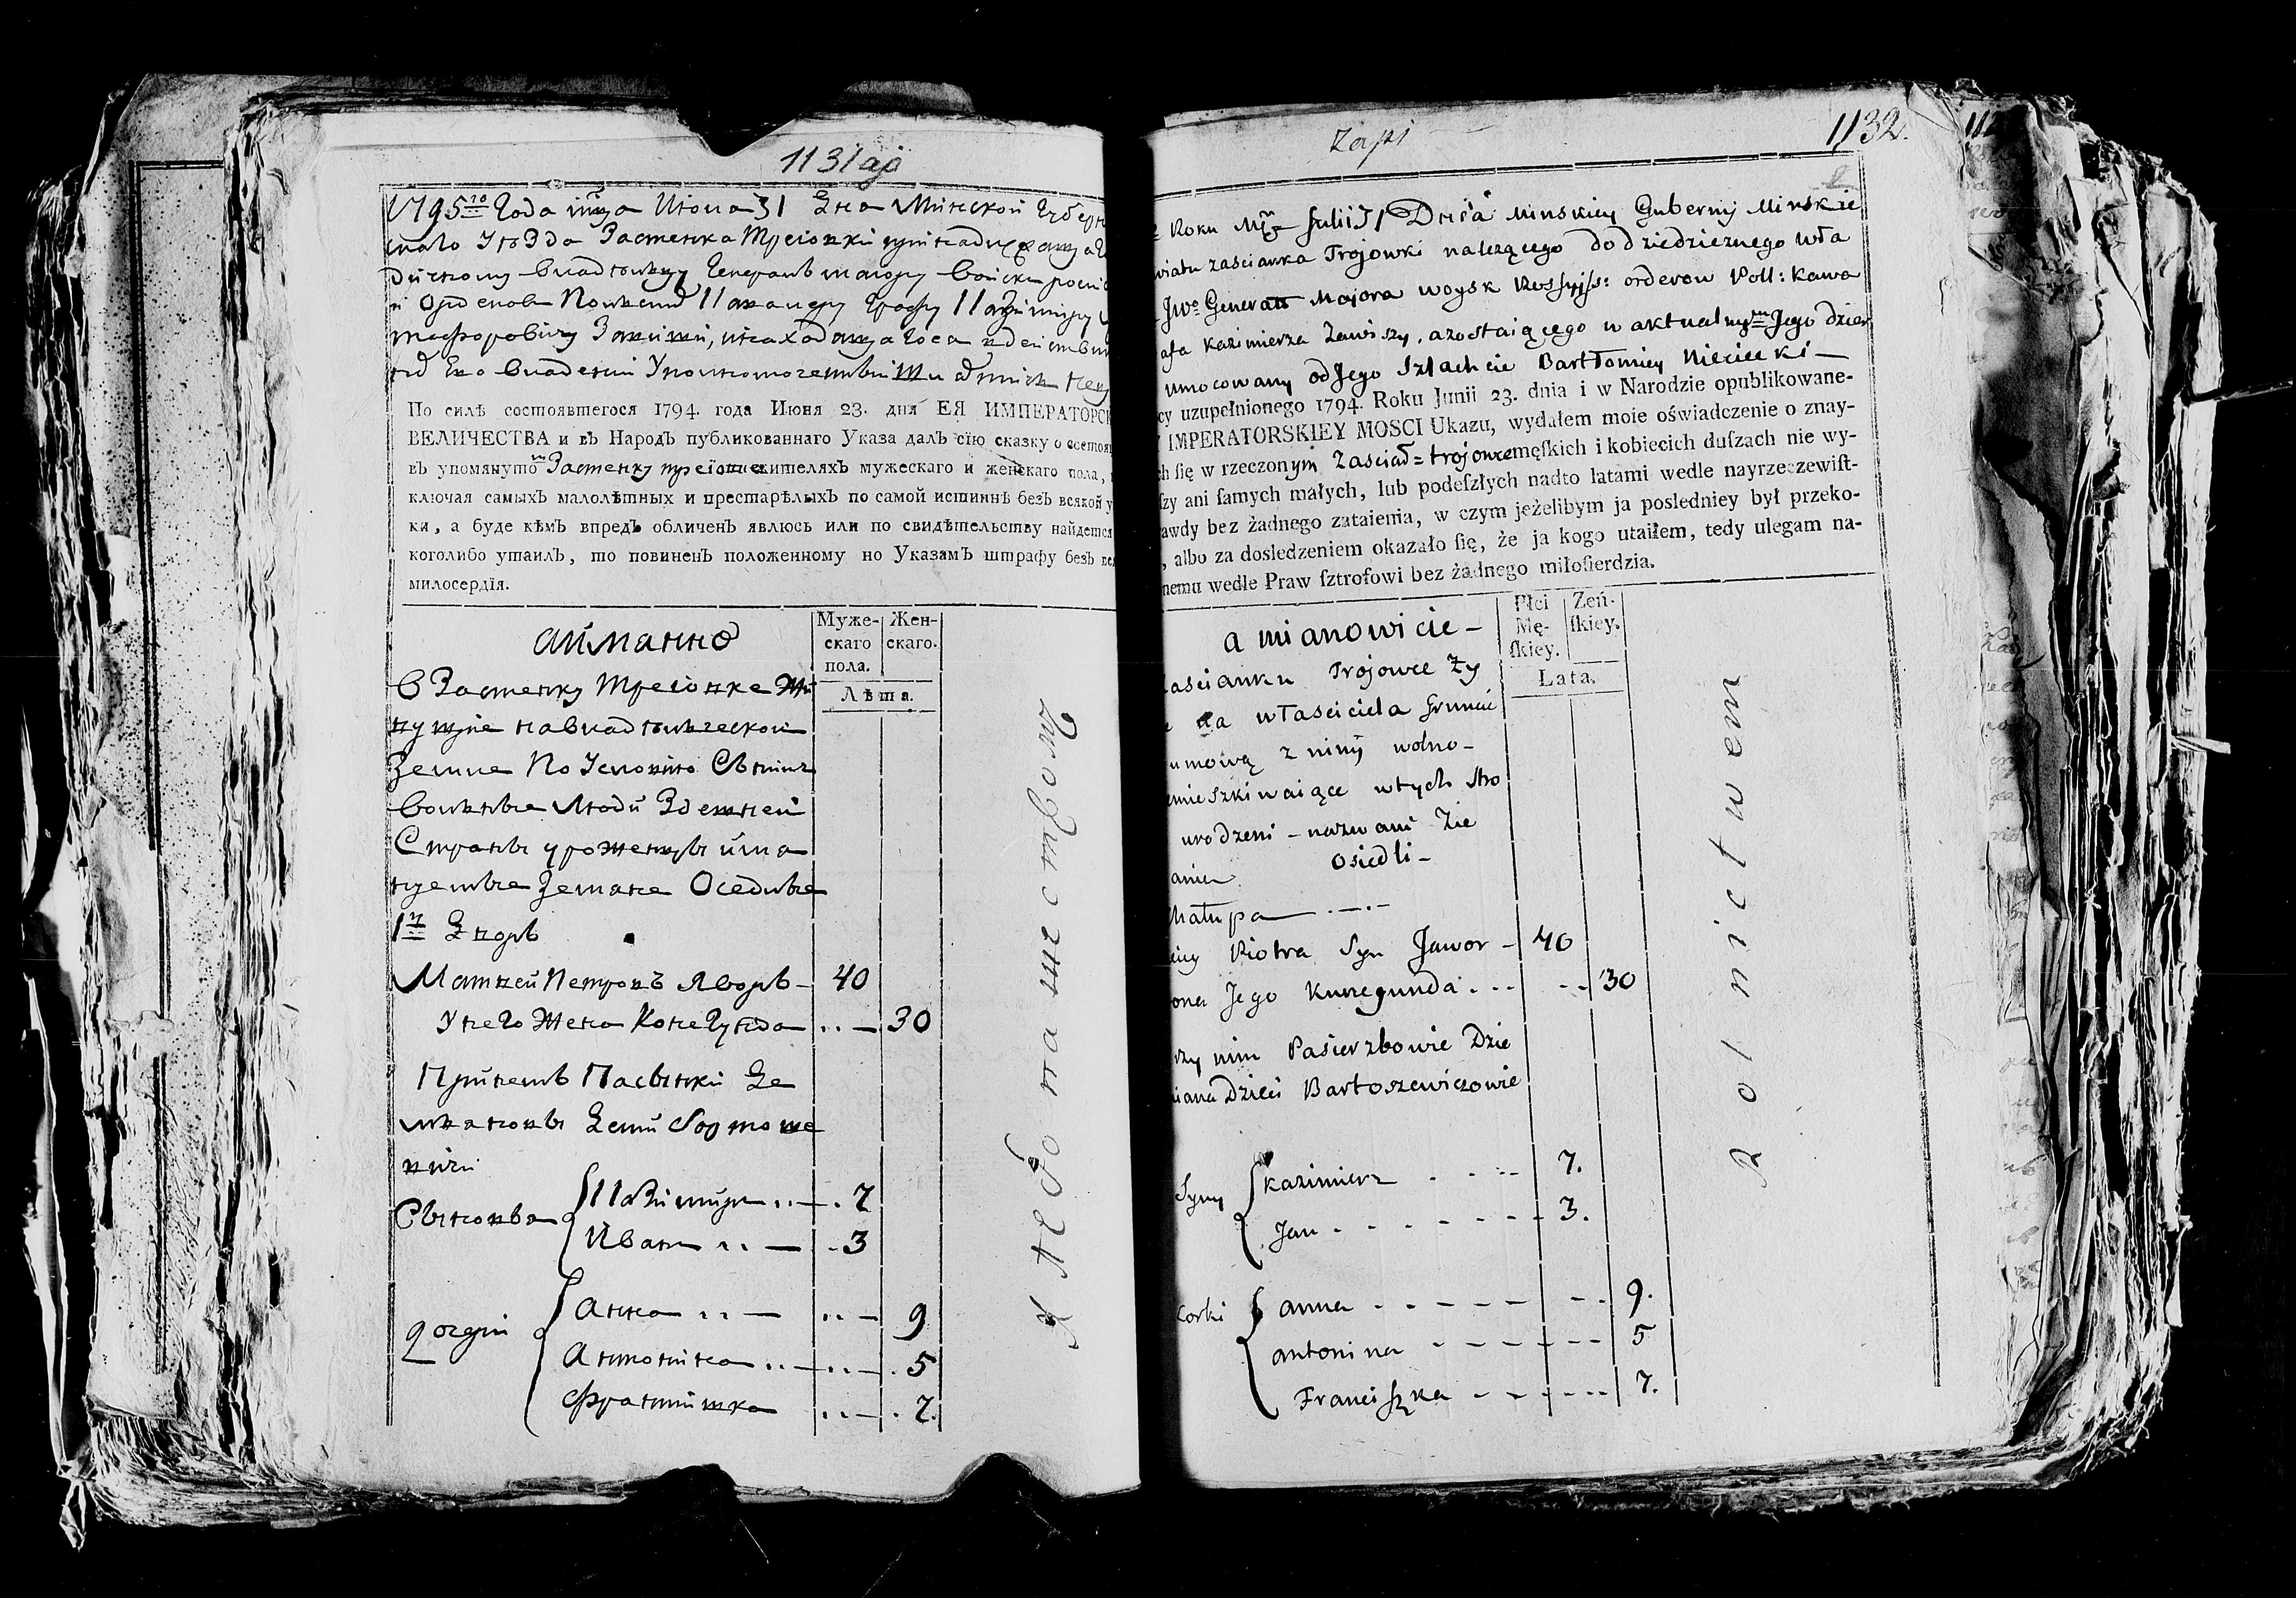 1131 aj
1795го Года мца Июля 31 Дня Минской Губерн
скаго уезда Застенка Тресовки принадлежащаго
дичному владельцу Генералъ маиору Войскъ росий
и Орденовъ Польскихъ Кавалеру Графу Казимиру
Завиши, инаходящагося в действи
По силѣ состоявшегося 1794. года Июня 23. дня ЕЯ ИМПЕРАТОРСК
ВЕЛИЧЕСТВА и въ НародЪ публикованнаго Указа далЪ сїю сказку о состоя
въ упомянутомъ Застенку жителяхЪ мужескаго и женскаго пола,
ключая самыхЪ малолѣтныхъ и престарѣлыхЪ по самой истиннѣ безЪ всякой у
ки, а буде кѣмЪ впредЪ обличенЪ явлюсь или по свидѣтельству найдется
коголибо утаилЪ, то повиненЪ положенному по УказамЪ штрафу безЪ вс
милосердїя.
аимянно
Муже-
скаго
пола.
Жен-
скаго.
Лѣта.
В Застенку Жи
вущие навладельческой
Земле По условию Сними
вольные люди Здешней
Страны уроженцы има
нуемые Земяне Оседлые
1й Дворъ
Матвей Петровъ Яворъ – 40
У него Жена Конегунда .. — 30
Принемъ Пасынки Де
мяновы Дети Бортоше
вичи
Сыновья
Казимиръ .. — . 7
Иванъ .. — . 3
дочери
Анна .. — .. — 9
Антонина .. — .. — . 5
Францишка .. — . 7.
Хлебопашествомъ
Zapi
1132.
Roku Mca Julii 31 Dnia Minskiey Gubernij Minskie
wiatu zascianka Trojowki nalezącego do dziedzicznego wła
JWo Generał Majora woysk Rossyiss: orderow Poll: Kawa
afa Kazimierza Zawiszy, azostaiącego w aktualnym Jego dzier
umocowany od Jego Szlachcic Bartłomiey Nieciecki —
cy uzupełnionego 1794. Roku Junii 23. dnia i w Narodzie opublikowane-
Y IMPERATORSKIEY MOSCI Ukazu, wydałem moie oświadczenie o znay-
ch się w rzeczonym Zasciań = trojowce męſkich i kobiecich duſzach nie wy-
ſzy ani ſamych małych, lub podeſzłych nadto latami wedle nayrzeczewiſt-
awdy bez żadnego zataienia, w czym jeżelibym ja posledniey był przeko-
, albo za dosledzeniem okazało ſię, że ja kogo utaiłem, tedy ulegam na-
nemu wedle Praw ſztrofowi bez żadnego miłoſierdzia.
a mianowicie —
Płci
Mę-
ſkiey.
Zeń-
ſkiey.
Lata.
ascianku Trojowce Zy
na własciciela Gruncie
umową z nimj wolno –
emieszkiwaiące wtych stro
urodzeni – nazwani Zie
Osiedli –
anie
Chałupa — . — . –
iey Piotra Syn Jawor – 40
ona Jego Kunegunda . – – – – 30
rzy nim Pasierzbowie Dzie
iana Dzieci Bartoszewiczowie
Syny
Kazimierz . . – – 7.
Jan . – . – . – – 3.
Corki
anna . – – – – – – . 9.
antonina . – – – – – 5
Franciszka . – – – – . . 7.
Rolnictwem